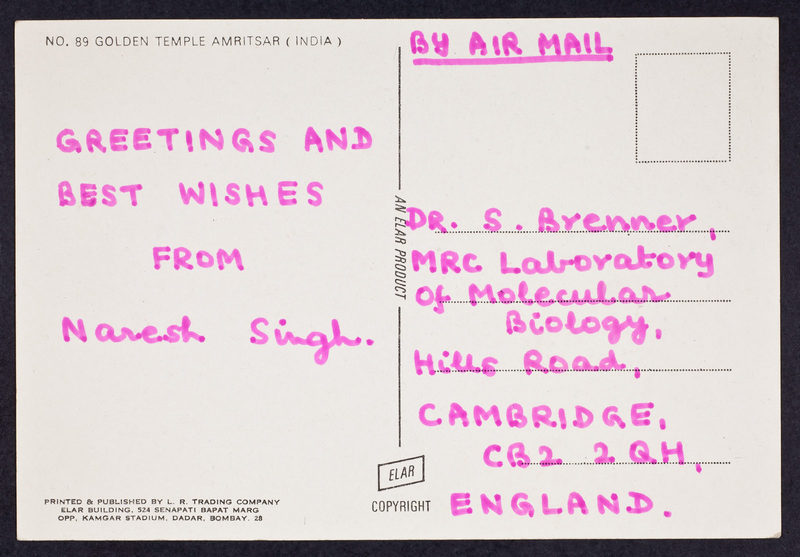 NO. 89 GOLDEN TEMPLE AMRITSAR ( INDIA )
GREETINGS AND
BEST WISHES
FROM
Naresh Singh.
PRINTED & PUBLISHED BY L. R. TRADING COMPANY
ELAR BUILDING, 524 SENAPATI BAPAT MARG
OPP. KAMGAR STADIUM, DADAR, BOMBAY. 28
AN ELAR PRODUCT
ELAR
COPYRIGHT
BY AIR MAIL
DR. S. Brenner,
MRC Laboratory
Of Molecular
Biology,
Hills Road,
CAMBRIDGE,
CB2 2QH,
ENGLAND.